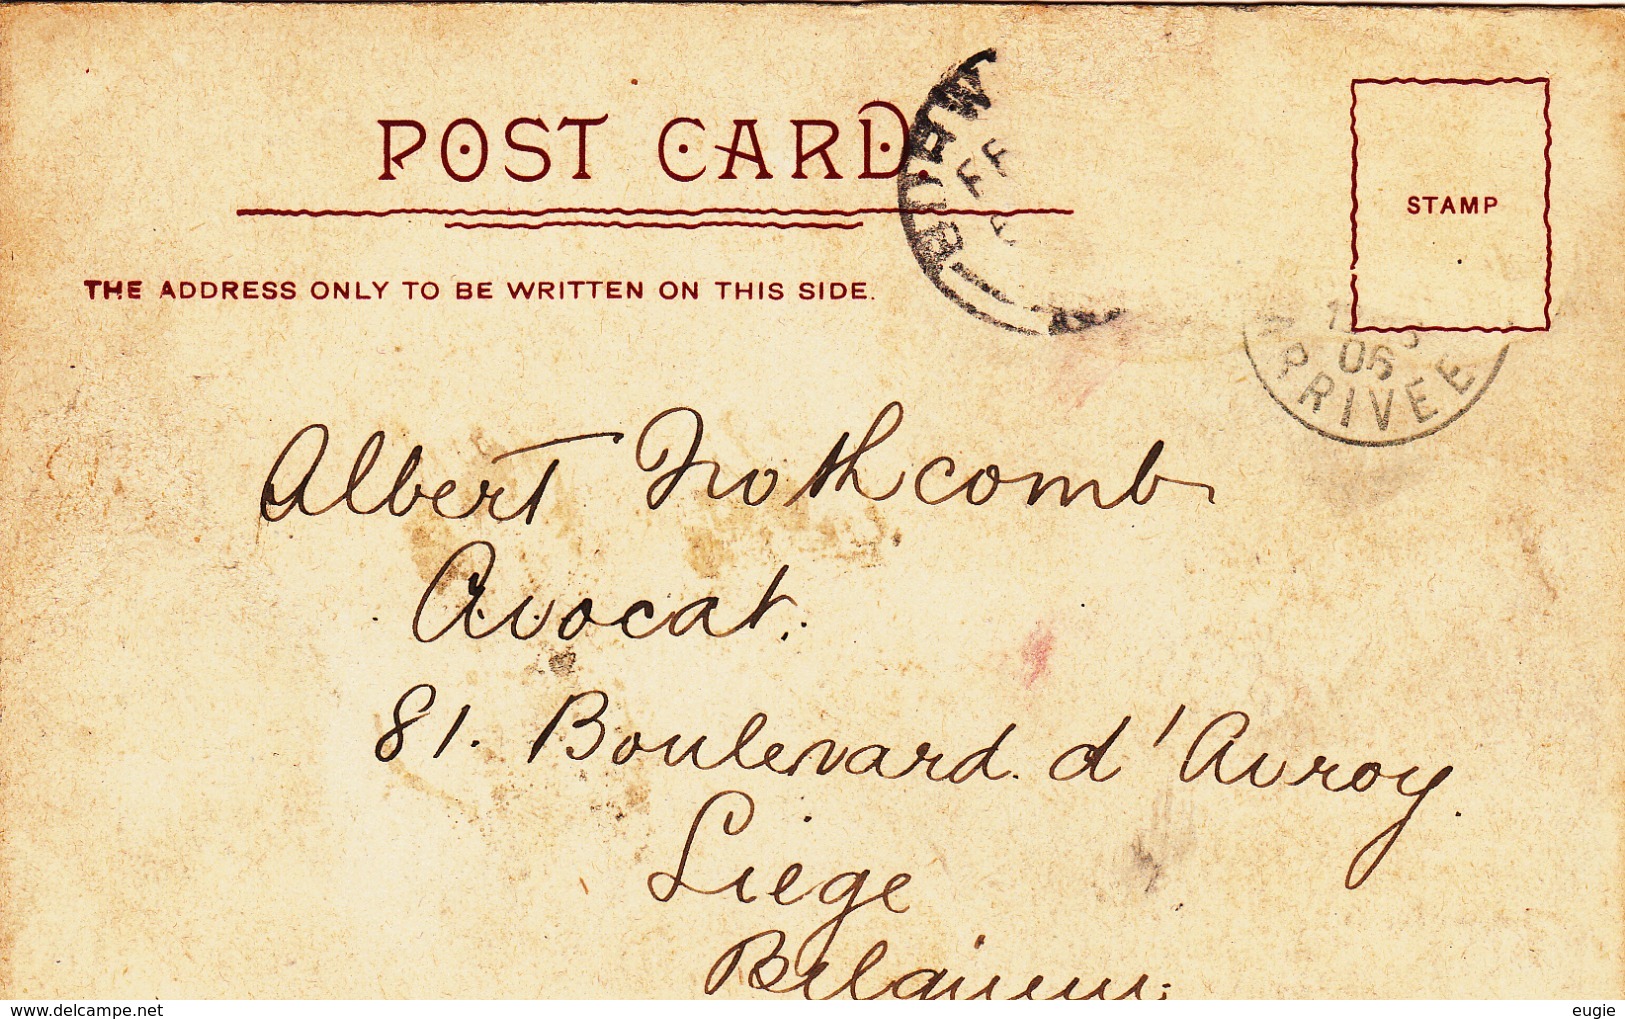 POST CARD.
STAMP
THE ADDRESS ONLY TO BE WRITTEN ON THIS SIDE.
06
ARRIVEE
Albert Nothcomb
Avocat.
81. Boulevard. d'Avroy.
Liège
delcampe.net
eugie